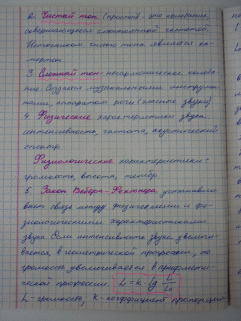 2. Чистый тон (простой) - это колебание,
совершающееся с постоянной частотой.
Источником чистого тона является ка-
мертон.
3. Сложный тон - негармоническое колеба-
ние. Создаётся музыкальными инструмен-
тами, аппаратом речи (гласные звуки).
4. Физические характеристики звука:
интенсивность, частота, акустический
спектр.
Физиологические характеристики -
громкость, высота, тембр.
5. Закон Вебера-Фехнера, устанавли-
вает связь между физическими и фи-
зиологическими характеристиками
звука. Если интенсивность звука увеличи-
вается в геометрической прогрессии, то
громкость увеличивается в арифмети-
ческой прогрессии. L = k lg
L - громкость, k - коэффициент пропорцио-